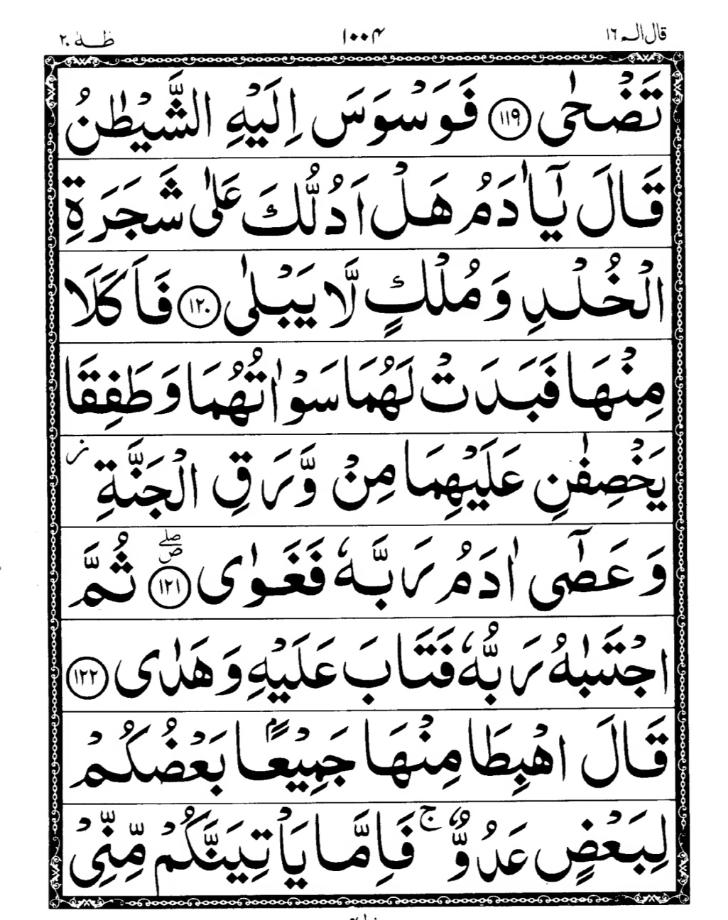 قال الم ١٦ ١٠٠٤ طٰهٰ ٢٠
تَضْحٰى ١١٩ فَوَسْوَسَ اِلَيْهِ الشَّيْطٰنُ
قَالَ يٰٓاٰدَمُ هَلْ اَدُلُّكَ عَلٰى شَجَرَةِ
الْخُلْدِ وَمُلْكٍ لَّا يَبْلٰى ١٢٠ فَاَكَلَا
مِنْهَا فَبَدَتْ لَهُمَا سَوْاٰتُهُمَا وَطَفِقَا
يَخْصِفٰنِ عَلَيْهِمَا مِنْ وَّرَقِ الْجَنَّةِ ز
وَعَصٰٓى اٰدَمُ رَبَّهٗ فَغَوٰى ١٢١ صلے ص ثُمَّ
اجْتَبٰىهُ رَبُّهٗ فَتَابَ عَلَيْهِ وَهَدٰى ١٢٢
قَالَ اهْبِطَا مِنْهَا جَمِيْعًۢا بَعْضُكُمْ
لِبَعْضٍ عَدُوٌّ ج فَاِمَّا يَاْتِيَنَّكُمْ مِّنِّيْ